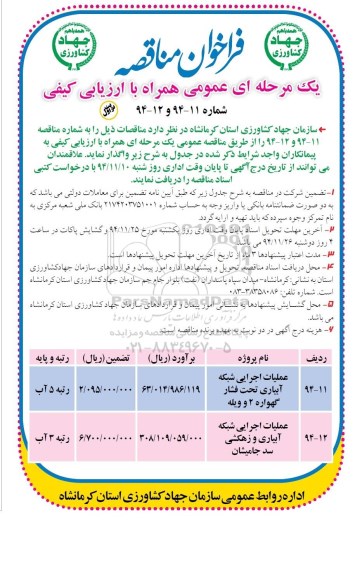 جهاد کشاورزی
فراخوان مناقصه
جهاد کشاورزی
یک مرحله ای عمومی همراه با ارزیابی کیفی
شماره ۱۱-۹۴ و ۱۲-۹۴
سازمان جهاد کشاورزی استان کرمانشاه در نظر دارد مناقصات ذیل را به شماره مناقصه
۱۱-۹۴ و ۱۲-۹۴ را از طریق مناقصه عمومی یک مرحله ای همراه با ارزیابی کیفی به
پیمانکاران واجد شرایط ذکر شده در جدول به شرح زیر واگذار نماید. علاقمندان
می توانند از تاریخ درج آگهی تا پایان وقت اداری روز شنبه ۹۴/۱۱/۱۰ با درخواست کتبی
اسناد مناقصه را دریافت نمایند.
۱- تضمین شرکت در مناقصه به شرح جدول زیر که طبق آیین نامه تضمین برای معاملات دولتی می باشد که
به دو صورت ضمانتنامه بانکی یا واریز وجه به حساب شماره ۲۱۷۴۲۰۳۷۵۱۰۰۱ بانک ملی شعبه مرکزی به
نام تمرکز وجوه سپرده که باید تهیه و ارایه گردد.
۲- آخرین مهلت تحویل اسناد پایان وقت اداری روز یکشنبه مورخ ۹۴/۱۱/۲۵ و گشایش پاکات در ساعت
۴ روز دوشنبه ۹۴/۱۱/۲۶ می باشد.
۳- مدت اعتبار پیشنهادها ۳ ماه از تاریخ آخرین مهلت تحویل پیشنهادها است.
۴- محل دریافت اسناد مناقصه تحویل و پیشنهادها اداره امور پیمان و قراردادهای سازمان جهاد کشاورزی
استان به نشانی: کرمانشاه- میدان سپاه پاسداران (نفت) بلوار جام جم سازمان جهاد کشاورزی استان کرمانشاه
است. شماره تلفن: ۳۸۳۵۸۰۸۶-۰۸۳
محل گشایش پیشنهادها به نشانی امور پیمان و قراردادهای سازمان جهاد کشاورزی استان کرمانشاه
می باشد.
۷- هزینه درج آگهی در دو نوبت به عهده برنده مناقصه است.
۰۲۱-۸۸۳۴۹۶۷۰-۵
ردیف نام پروژه برآورد (ریال) تضمین (ریال) رتبه و پایه
۹۴-۱۱ عملیات اجرایی شبکه آبیاری تحت فشار گهواره ۲ و ویله ۶۳/۰۱۴/۹۸۶/۱۱۹ ۲/۰۹۵/۰۰۰/۰۰۰ رتبه ۵ آب
۹۴-۱۲ عملیات اجرایی شبکه آبیاری و زهکشی سد جامیشان ۳۰۸/۱۰۹/۰۵۹/۰۰۰ ۶/۷۰۰/۰۰۰/۰۰۰ رتبه ۳ آب
اداره روابط عمومی سازمان جهاد کشاورزی استان کرمانشاه